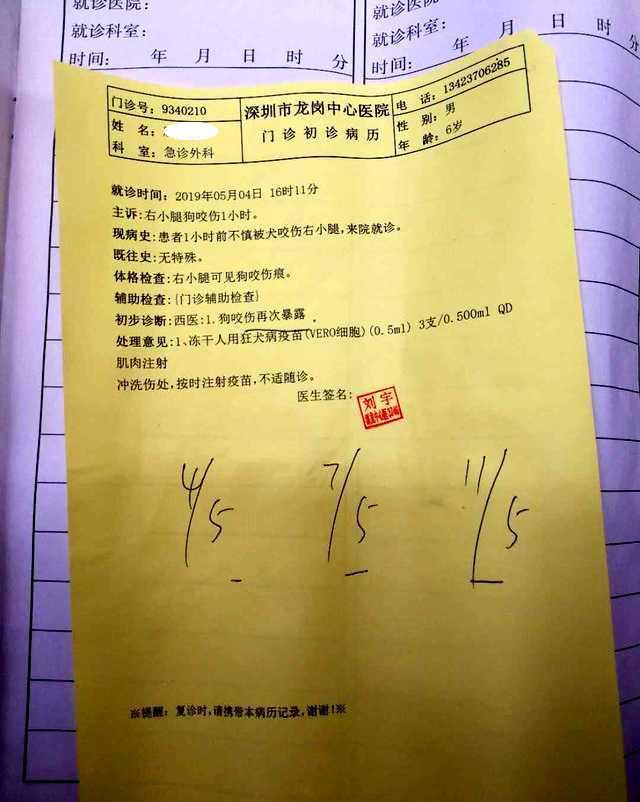 就诊医院：
就诊科室：
时间： 年 月 日 时 分
就诊医院：
就诊科室：
时间： 年 月 日 时 分
门诊号：9340210
姓 名：
科 室：急诊外科
深圳市龙岗中心医院
门诊初诊病历
电 话：13423706285
性 别：男
年 龄：6岁
就诊时间：2019年05月04日 16时11分
主诉：右小腿狗咬伤1小时。
现病史：患者1小时前不慎被犬咬伤右小腿，来院就诊。
既往史：无特殊。
体格检查：右小腿可见狗咬伤痕。
辅助检查：{门诊辅助检查}
初步诊断：西医：1.狗咬伤再次暴露
处理意见：1、冻干人用狂犬病疫苗(VERO细胞)(0.5ml) 3支/0.500ml QD
肌肉注射
冲洗伤处，按时注射疫苗，不适随诊。
医生签名：
刘宇
4/5 7/5 11/5
※提醒：复诊时，请携带本病历记录，谢谢！※